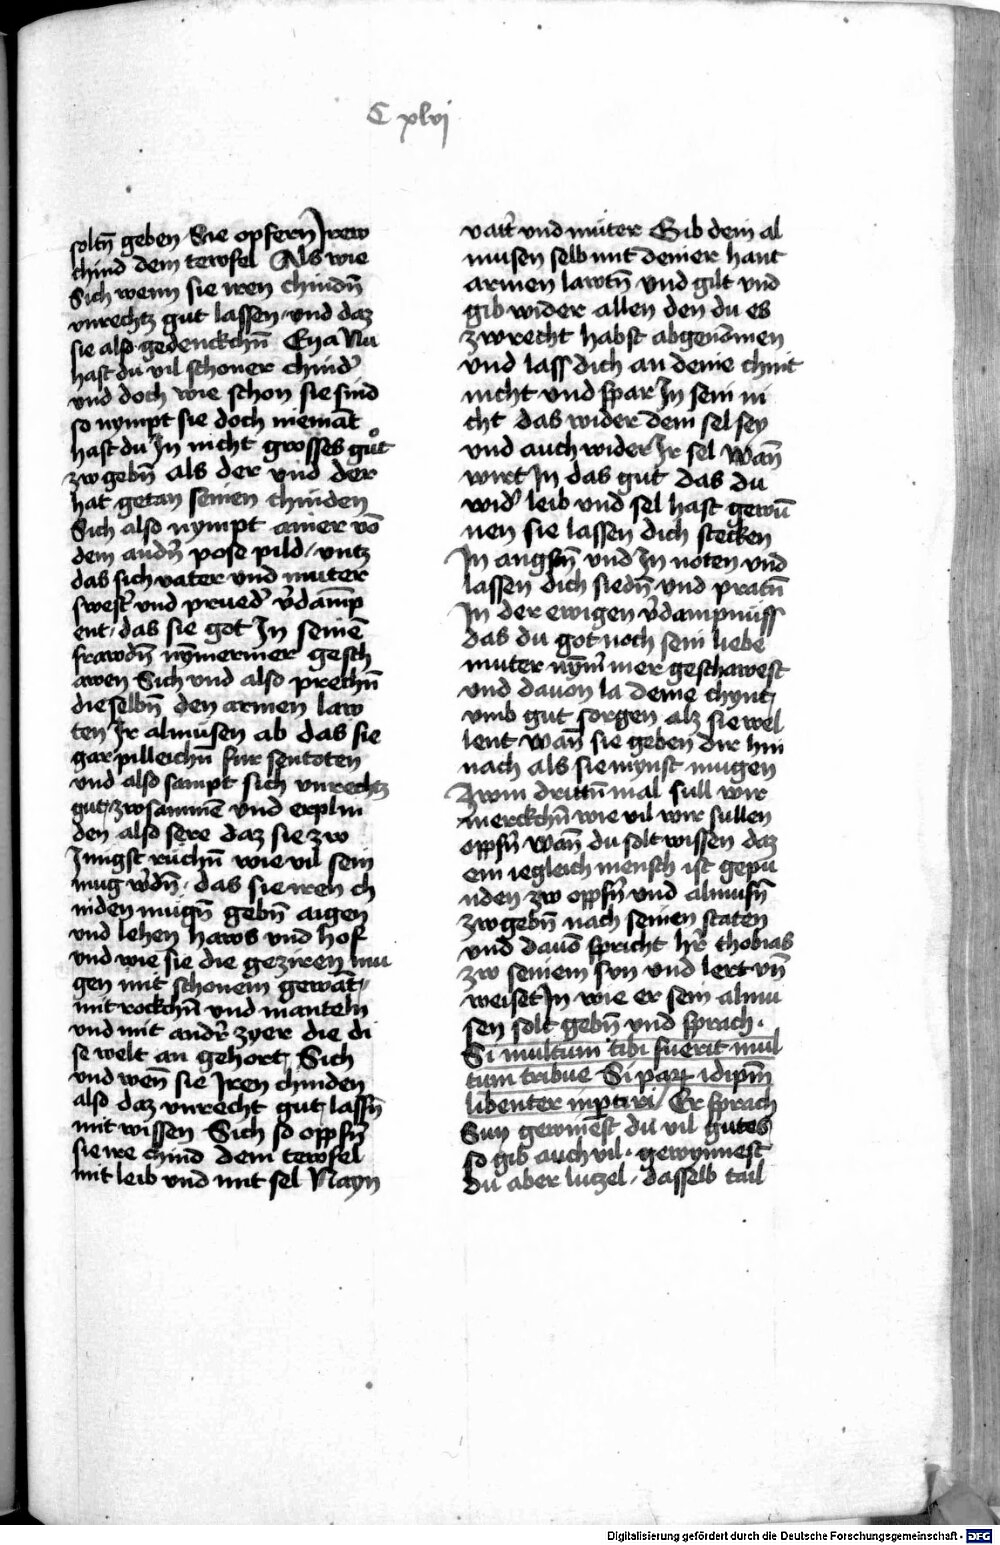 C xlvi
soltn̄ geben Sie opfern Irew
chind dem tewfel Als wie
Sich wenn sie iren chindn̄
vnrechtz gut lassen / vnd daz
sie also gedenckchn̄ Eya Nu
hast du vil schoner chind̓
vnd doch wie schon sie sind
so nympt sie doch niemāt
hast du In nicht grosses gůt
zw gebn̄ als der vnd der
hat getan seinen chinden
Sich also nympt ainer vō
dem andn̄ pose pild / vntz
das sich vater vnd muter
swest̓ vnd prued̓ v̓damp
ent / das sie got In seinē
frawdn̄ nȳmermer gesch
awen Sich vnd also prechn̄
die selbn̄ den armen law
ten Ir almusen ab das sie
gar pilleichn̄ fur sentoten
vnd also sampt sich vnrechtz
gut / zwsammē vnd erplin
den also sere daz sie zw
Jungst ruchn̄ wie vil sein
mug w̓dn̄ · das sie iren ch
inden mugn̄ gebn̄ aigen
vnd lehen haws vnd hof
vnd wie sie die geziren mu
gen mit schonem gewāt /
mit rockchn̄ vnd manteln
vnd mit andr̄ zyer die di
se welt an gehort / Sich
vnd wen̄ sie Iren chinden
also daz vnrecht gut lassn̄
mit wissen Sich so oppfn̄
sie ire chind dem tewfel
mit leib vnd mit sel Nayn
vatt̓ vnd muter Gib dein al
musen selb mit deiner hant
armen lawtn̄ vnd gilt vnd
gib wider allen den du es
zwrecht habst abgenōmen
vnd lass dich an deine chint
nicht vnd spar In sein ni
cht das wider dein sel sey
vnd auch wider Ir sel Wan̄
wirt In das gut das du
wid̓ leib vnd sel hast gewū
nen sie lassen dich stecken
In angstn̄ vnd In noten vnd
lassen dich siedn̄ vnd pratn̄
In der ewigen v̓dampnuss
das du got noch sein liebe
muter nȳm̄ mer geschawest
vnd dauon la deine chynt /
vmb gut sorgen alz sie wel
lent Wan̄ sie geben dir hin
nach als sie mynst mugen
Zwm drittn̄ mal sull wir
merckchn̄ wie vil wir sullen
oppfn̄ Wan̄ du solt wissen daz
ein iegleich mensch ist gepu
nden zw oppfn̄ vnd almusn̄
zw gebn̄ nach seinen staten
vnd dauō spricht hr̄ thobias
zw seinem svn vnd lert vn̄
weiset In wie er sein almu
sen solt gebn̄ vnd sprach ·
Si multum tibi fuerit mul
tum tribue Si par idipm̄
libenter imptiri / Er sprach
Sun gewinest du vil gutes
so gib auch vil · gewynnest
du aber lutzel / dasselb tail
Digitalisierung gefördert durch die Deutsche Forschungsgemeinschaft - DFG